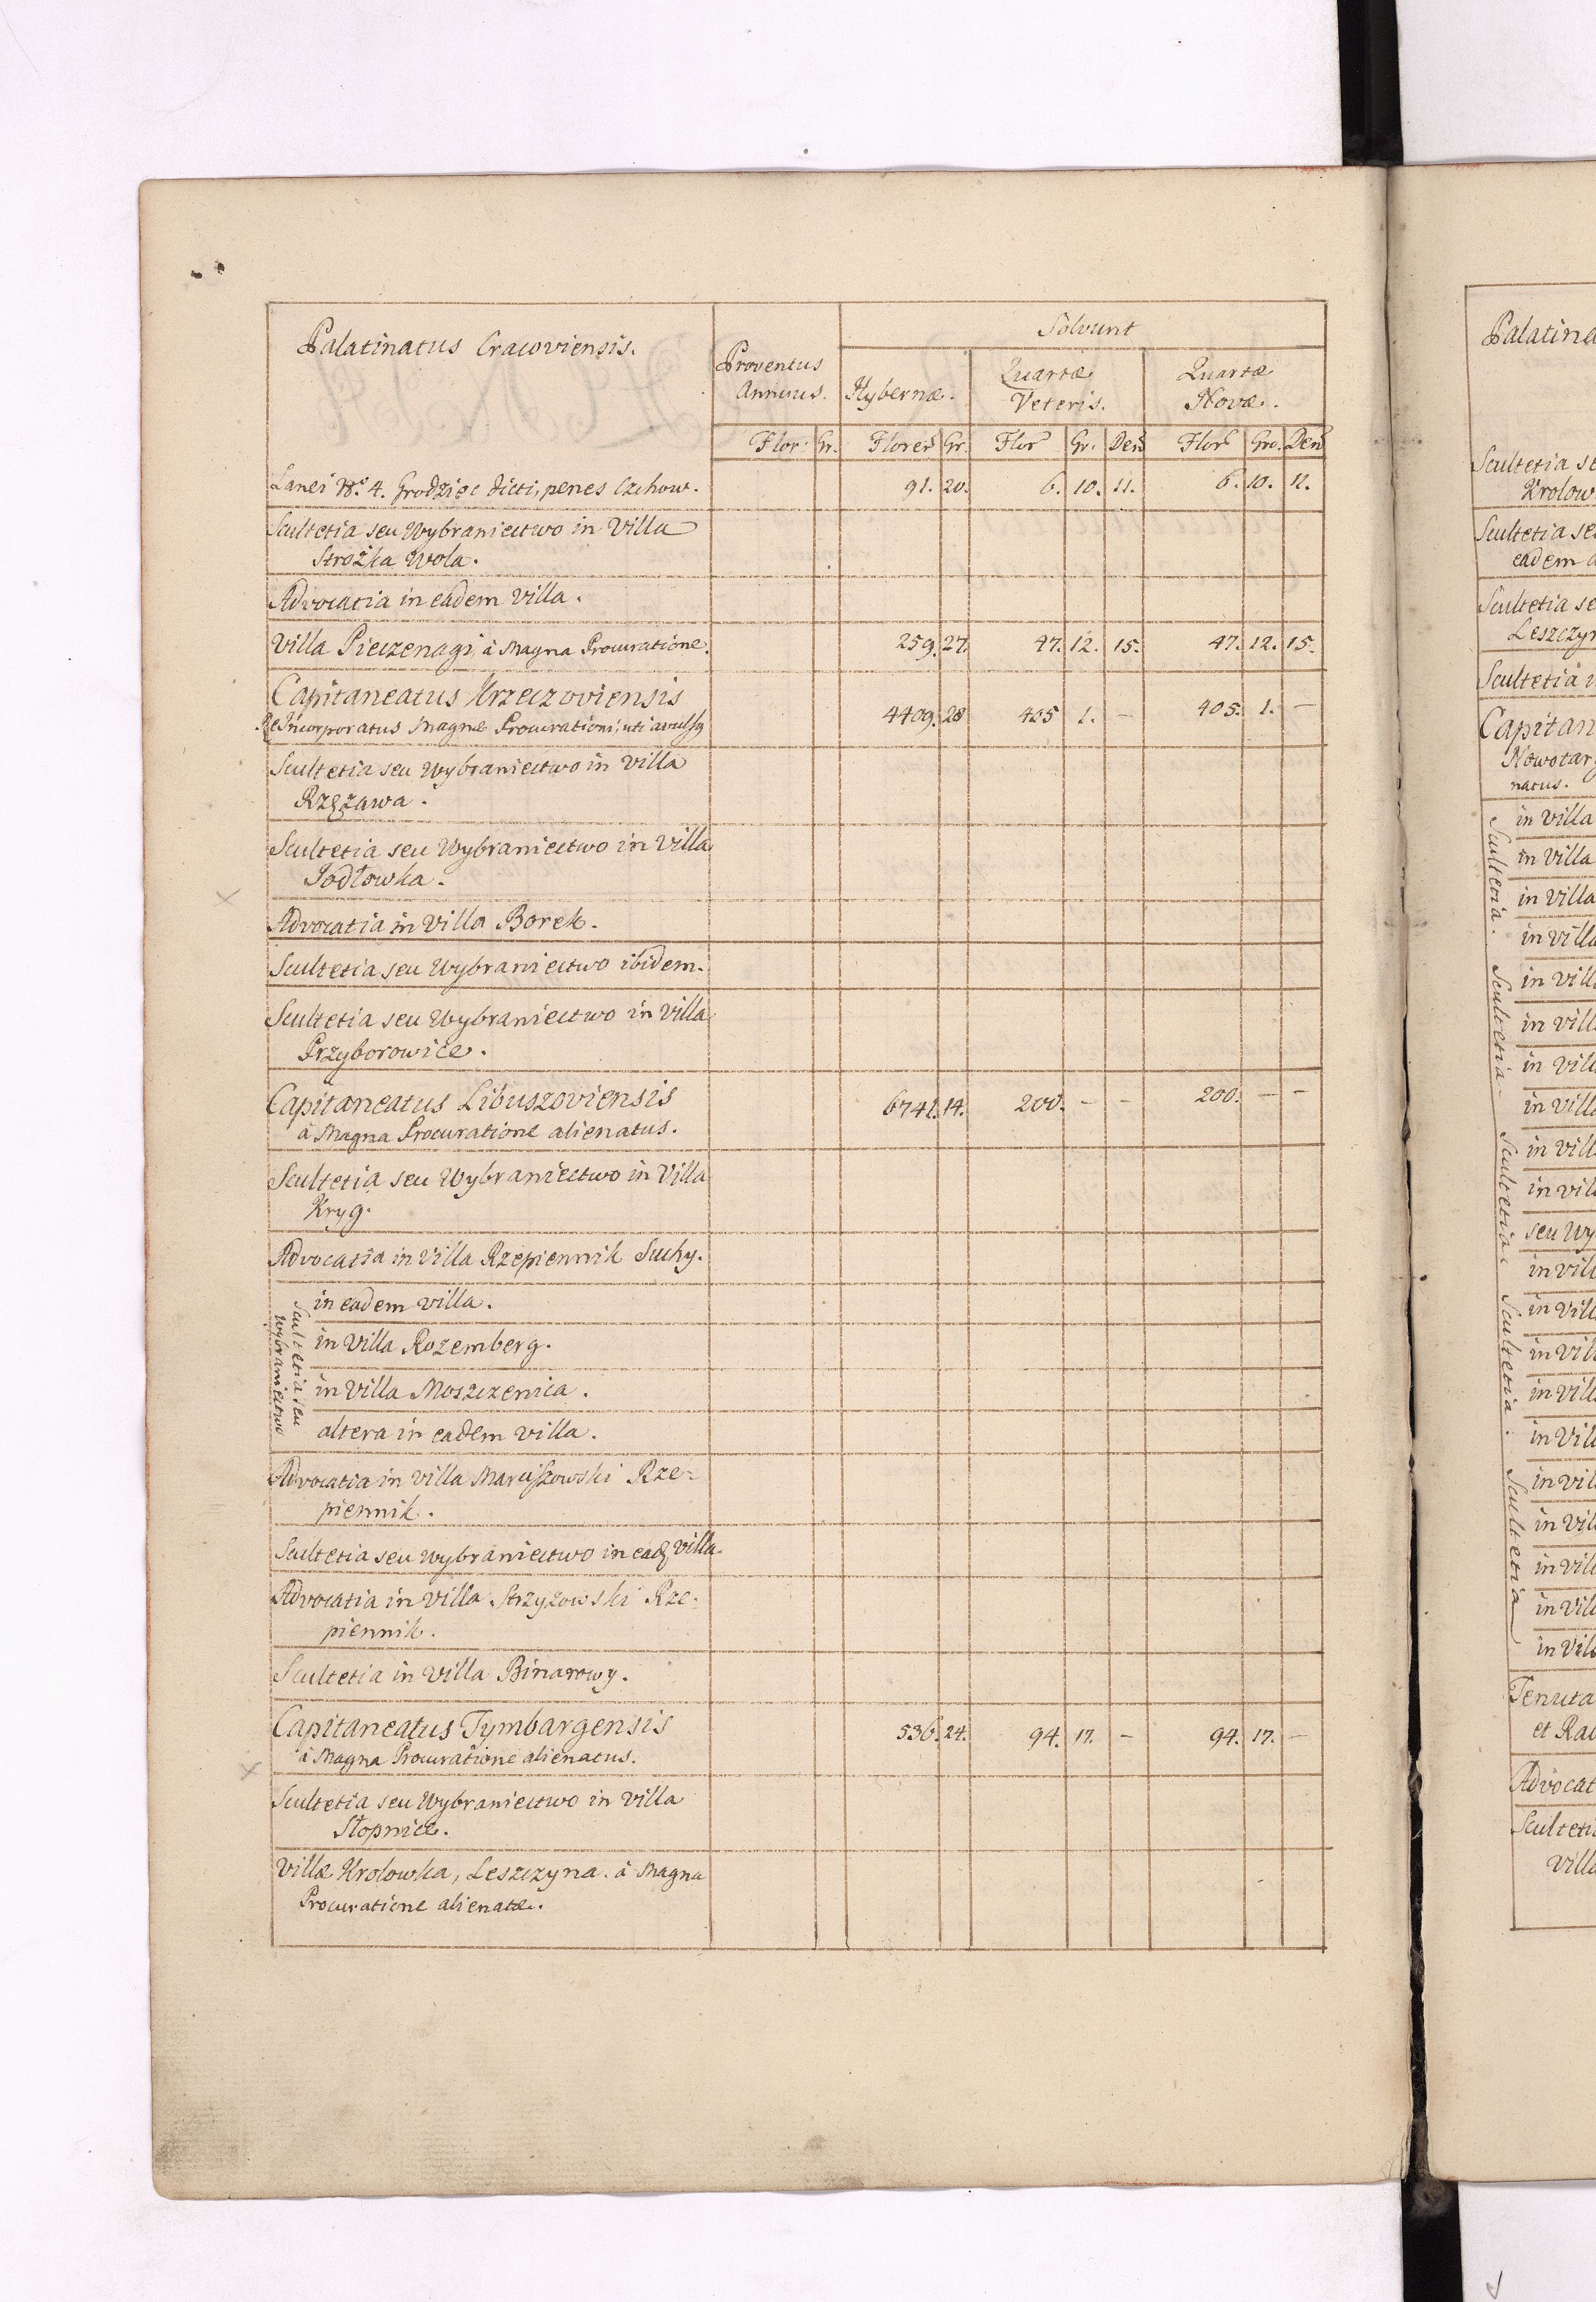 Palatinatus Cracoviensis.
Proventus Annuus.
Solvunt
Hybernæ.
Quartæ Veteris.
Quartæ Novæ.
Flor: Gr. Floreñ Gr. Flor Gr. Deñ Flor Gro. Deñ
Lanei No. 4. Grodziec dicti, penes Czchow. 91. 20. 6. 10. 11. 6. 10. 11.
Scultetia seu Wybraniectwo in Villa
Strożka Wola.
Advocatia in eadem Villa.
Villa Pieczenogi, à Magna Procuratione. 259. 27. 47. 12. 15. 47. 12. 15.
Capitaneatus Krzeczoviensis
ReIncorporatus Magnæ Procurationi, uti avulsq 4409. 28 405 1. – 405. 1. –
Scultetia seu Wybraniectwo in Villa
Rzęzawa.
Scultetia seu Wybraniectwo in Villa
Jodłowka.
Advocatia in Villa Borek.
Scultetia seu Wybraniectwo ibidem.
Scultetia seu Wybraniectwo in Villa
Przyborowice.
Capitaneatus Libuszoviensis 6741. 14. 200. – – 200. – –
à Magna Procuratione alienatus.
Scultetia seu Wybraniectwo in Villa
Kryg.
Advocatia in Villa Rzepiennik Suchy.
Scultetia seu
Wybraniectwo
in eadem villa.
in Villa Rozemberg.
in Villa Moszczenica.
altera in eadem villa.
Advocatia in Villa Marciszowski Rze-
piennik.
Scultetia seu Wybraniectwo in eadq villa.
Advocatia in Villa Strzyzowski Rze-
piennik.
Scultetia in Villa Binarowy.
Capitaneatus Tymbargensis 536. 24. 94. 17. – 94. 17. –
à Magna Procuratione alienatus.
Scultetia seu Wybraniectwo in Villa
Słopnice.
Villæ Krolowka, Leszczyna. à Magna
Procuratione alienatæ.
Palatina
Scultetia se
Krolow
Scultetia se
eadem a
Scultetia se
Leszczyn
Scultetia i
Capitan
Nowotar
natus.
Scultetia. Scultetia. Scultetia. Scultetia. Scultetia
in Villa
in Villa
in Villa
in Villa
in Vill
in Vill
in Vill
in Vill
in Vill
in Vil
seu Wy
in Vil
in Vill
in Vil
in Vill
in Vil
in Vil
in Vil
in Vill
in Vil
in Vil
Tenuta
et Rac
Advocat
Scultetia
Villa